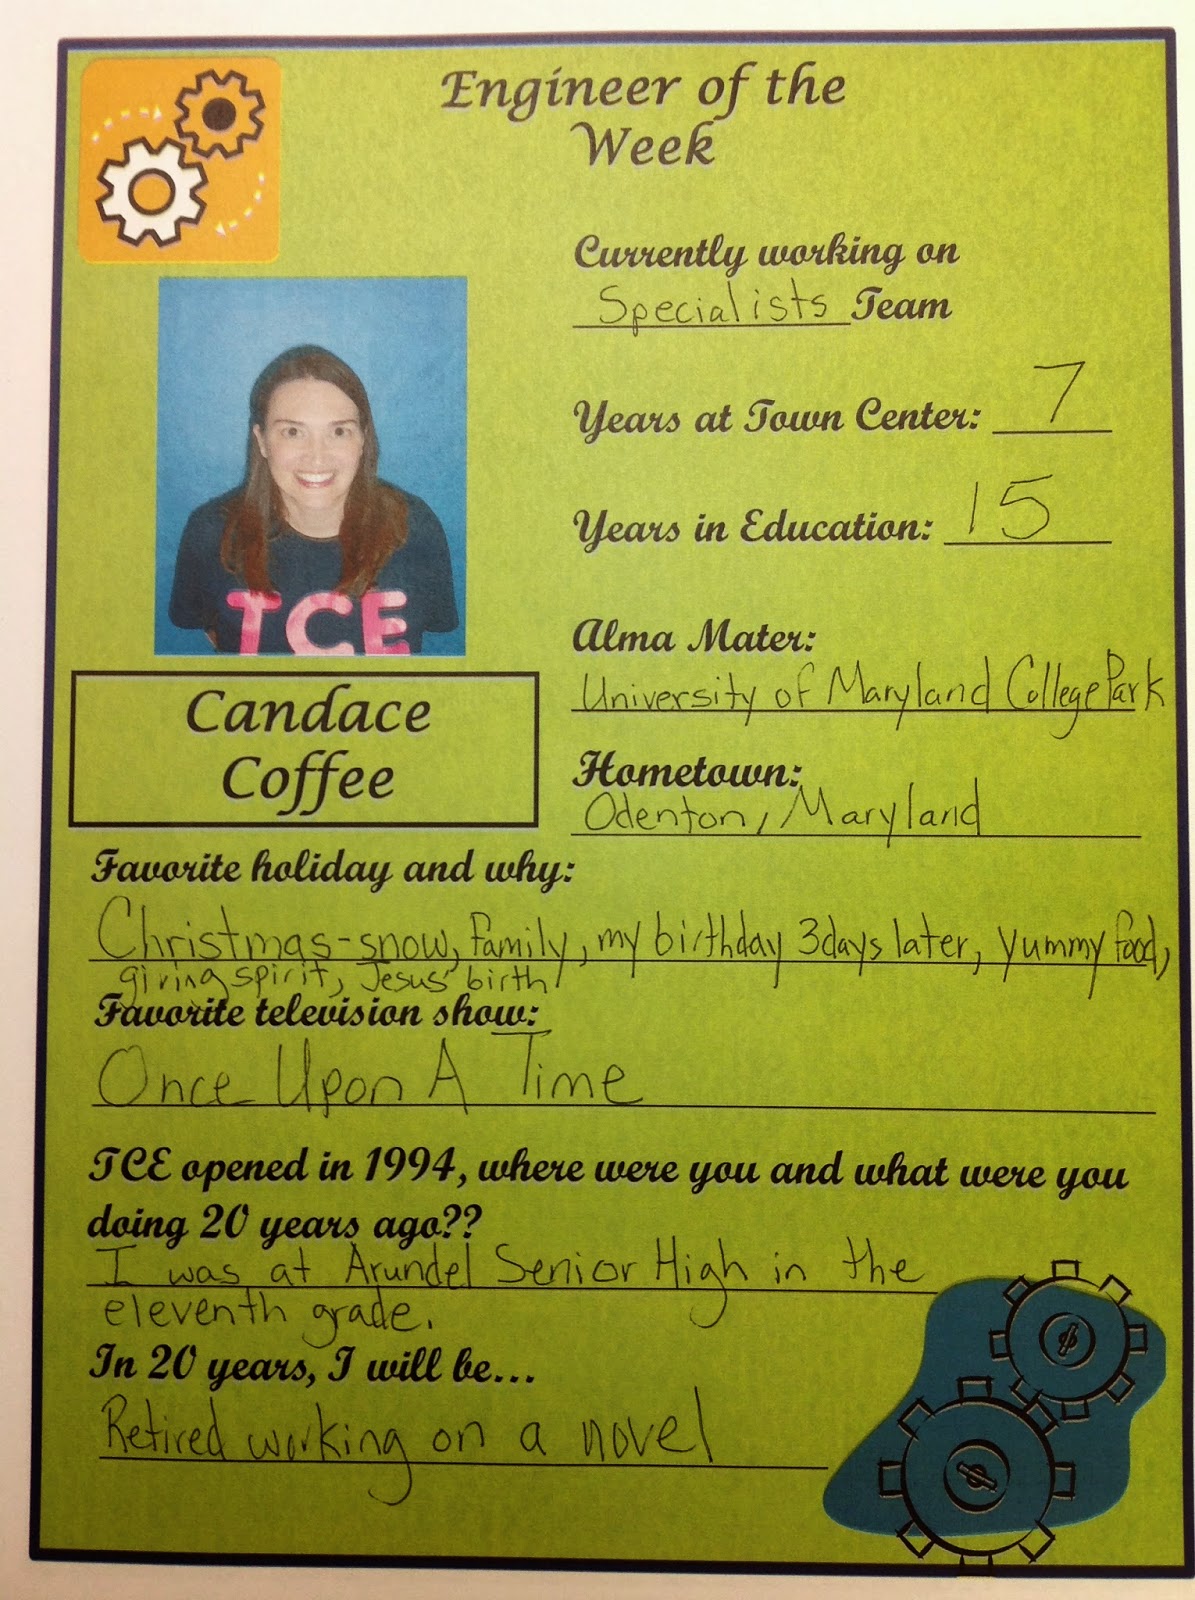 Engineer of the
Week
Currently working on
Specialists Team
Years at Town Center: 7
Years in Education: 15
TCE
Alma Mater:
University of Maryland College Park
Candace
Coffee
Hometown:
Odenton, Maryland
Favorite holiday and why:
Christmas-snow, family, my birthday 3days later, yummy food,
giving spirit, Jesus' birth
Favorite television show:
Once Upon A Time
TCE opened in 1994, where were you and what were you
doing 20 years ago??
I was at Arundel Senior High in the
eleventh grade.
In 20 years, I will be...
Retired working on a novel